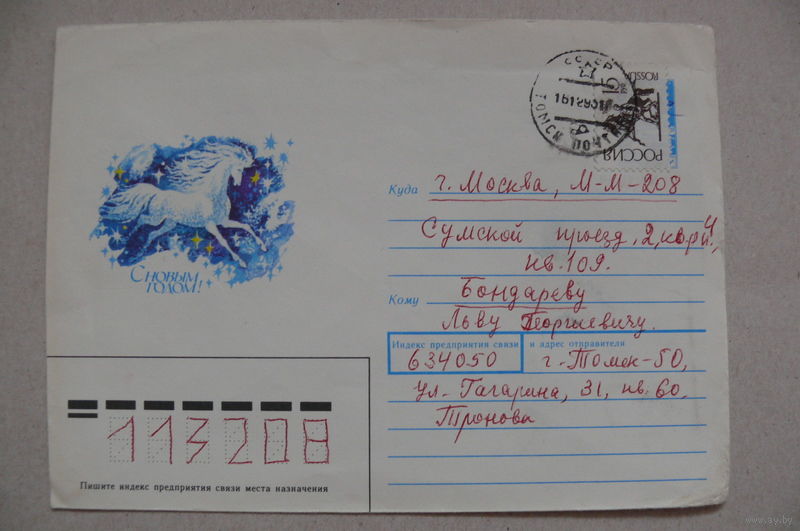 СССР
16129317
ТОМСК ПОЧТАМТ
ROSSIJA
15
РОССИЯ
С НОВЫМ
ГОДОМ!
Куда г. Москва, М-М-208
Сумской проезд, 2, корп 4,
кв. 109.
Кому Бондареву
Льву Георгиевичу.
Индекс предприятия связи и адрес отправителя
634050 г. Томск-50,
ул. Гагарина, 31, кв. 60,
Тронова
113208
Пишите индекс предприятия связи места назначения
www.ay.by